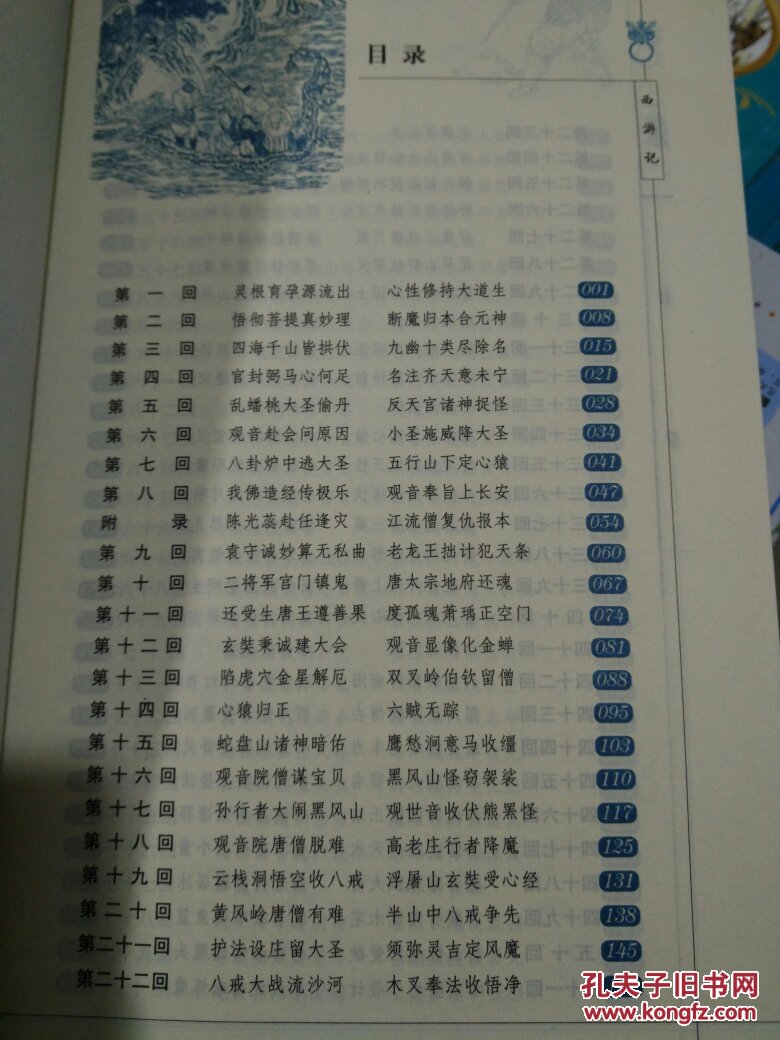 目录
西游记
第一回 灵根育孕源流出 心性修持大道生 001
第二回 悟彻菩提真妙理 断魔归本合元神 008
第三回 四海千山皆拱伏 九幽十类尽除名 015
第四回 官封弼马心何足 名注齐天意未宁 021
第五回 乱蟠桃大圣偷丹 反天宫诸神捉怪 028
第六回 观音赴会问原因 小圣施威降大圣 034
第七回 八卦炉中逃大圣 五行山下定心猿 041
第八回 我佛造经传极乐 观音奉旨上长安 047
附录 陈光蕊赴任逢灾 江流僧复仇报本 054
第九回 袁守诚妙算无私曲 老龙王拙计犯天条 060
第十回 二将军宫门镇鬼 唐太宗地府还魂 067
第十一回 还受生唐王遵善果 度孤魂萧瑀正空门 074
第十二回 玄奘秉诚建大会 观音显像化金蝉 081
第十三回 陷虎穴金星解厄 双叉岭伯钦留僧 088
第十四回 心猿归正 六贼无踪 095
第十五回 蛇盘山诸神暗佑 鹰愁涧意马收缰 103
第十六回 观音院僧谋宝贝 黑风山怪窃袈裟 110
第十七回 孙行者大闹黑风山 观世音收伏熊罴怪 117
第十八回 观音院唐僧脱难 高老庄行者降魔 125
第十九回 云栈洞悟空收八戒 浮屠山玄奘受心经 131
第二十回 黄风岭唐僧有难 半山中八戒争先 138
第二十一回 护法设庄留大圣 须弥灵吉定风魔 145
第二十二回 八戒大战流沙河 木叉奉法收悟净
孔夫子旧书网
www.kongfz.com